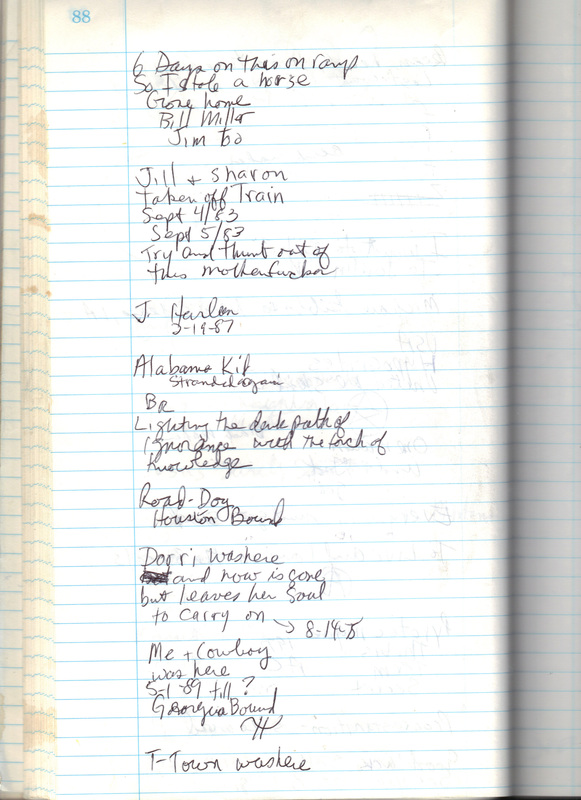 88
6 Days on this on ramp
So I stole a horse
Gone home
Bill Miller
Jim Bo
Jill + Sharon
taken off Train
Sept 4/83
Sept 5/83
Try and thumb out of
this motherfucker
J. Harlan
2-19-87
Alabama Kid
Stranded again
BR
Lighting the dark path of
ignorance with the torch of
knowledge
Road-Dog
Houston Bound
Dorri washere
and now is gone
but leaves her soul
to carry on → 8-14-
Me + Cowboy
was here
5-1-89 till ?
Georgia Bound
T-Town washere